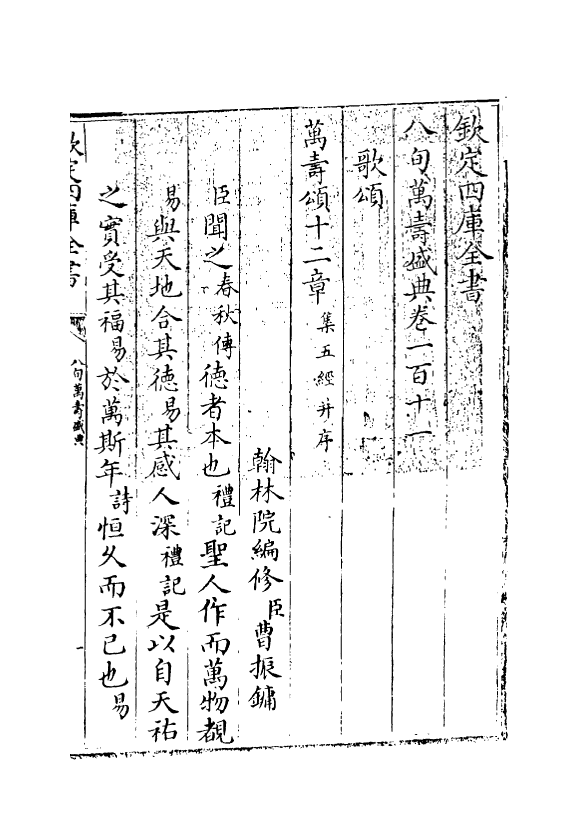 欽定四庫全書
八旬萬壽盛典卷一百十一
歌頌
萬壽頌十二章集五經并序
翰林院編修臣曹振鏞
臣聞之春秋傳德者本也禮記聖人作而萬物覩
易與天地合其德易其感人深禮記是以自天祐
之實受其福易於萬斯年詩恒久而不已也易
欽定四庫全書
八旬萬壽盛典